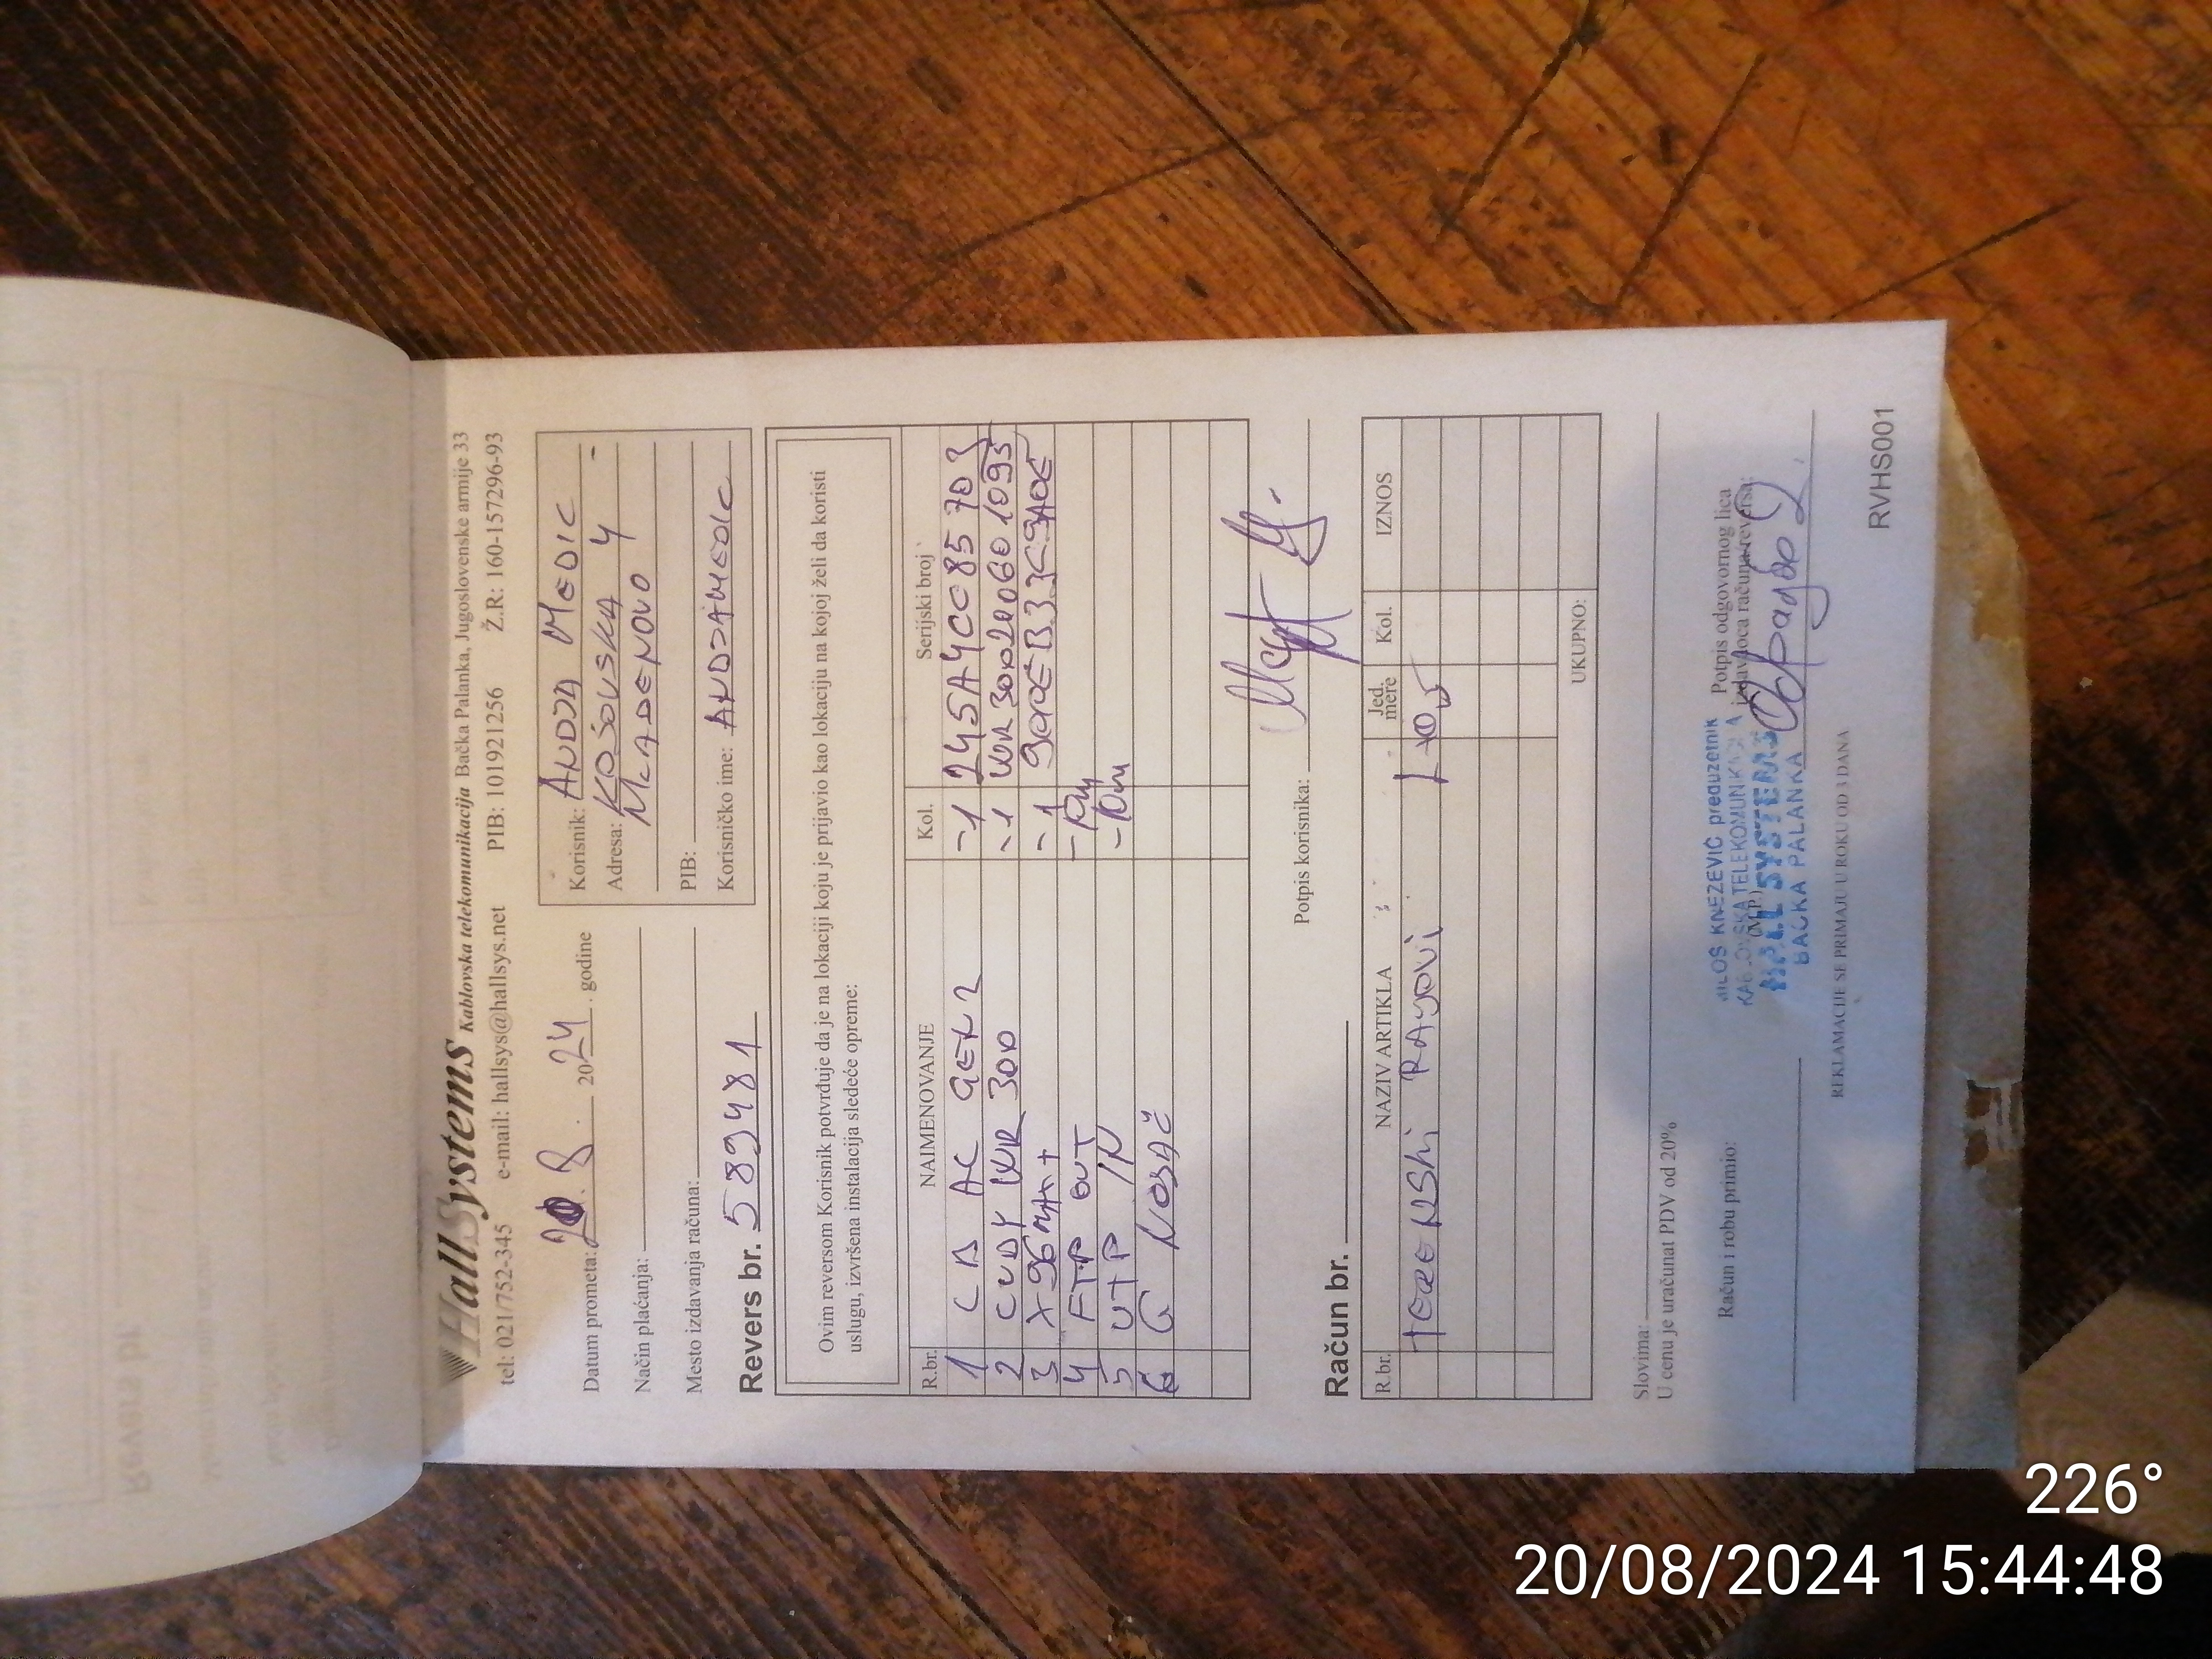 HallSystems Kablovska telekomunikacija Bačka Palanka, Jugoslovenske armije 33
tel: 021/752-345 e-mail: hallsys@hallsys.net PIB: 101921256 Ž.R: 160-157296-93
Datum prometa: 20. 8. 2024. godine
Način plaćanja:
Mesto izdavanja računa:
Korisnik: ANDJA MEDIC
Adresa: KOSOVSKA 4
MLADENOVO
PIB:
Korisničko ime: ANDJAMEDIC
Revers br. 589481
Ovim reversom Korisnik potvrđuje da je na lokaciji koju je prijavio kao lokaciju na kojoj želi da koristi
uslugu, izvršena instalacija sledeće opreme:
R.br. NAIMENOVANJE Kol. Serijski broj
1 AC GEN 2 -1
2 CUDY WR 300 -1 WR300
3 X96 -1
4 FTP OUT
5 UTP IN
6 G NOSAČ
Potpis korisnika:
Račun br.
R.br. NAZIV ARTIKLA Jed. mere Kol. IZNOS
TERENSKI RADOVI
UKUPNO:
Slovima:
U cenu je uračunat PDV od 20%
Račun i robu primio:
(M.P.)
Potpis odgovornog lica
izdavaoca računa/reversa:
MILOŠ KNEZEVIĆ preduzetnik
KABLOVSKA TELEKOMUNIKACIJA
HALL SYSTEMS
BAČKA PALANKA
REKLAMACIJE SE PRIMAJU U ROKU OD 3 DANA
RVHS001
226°
20/08/2024 15:44:48